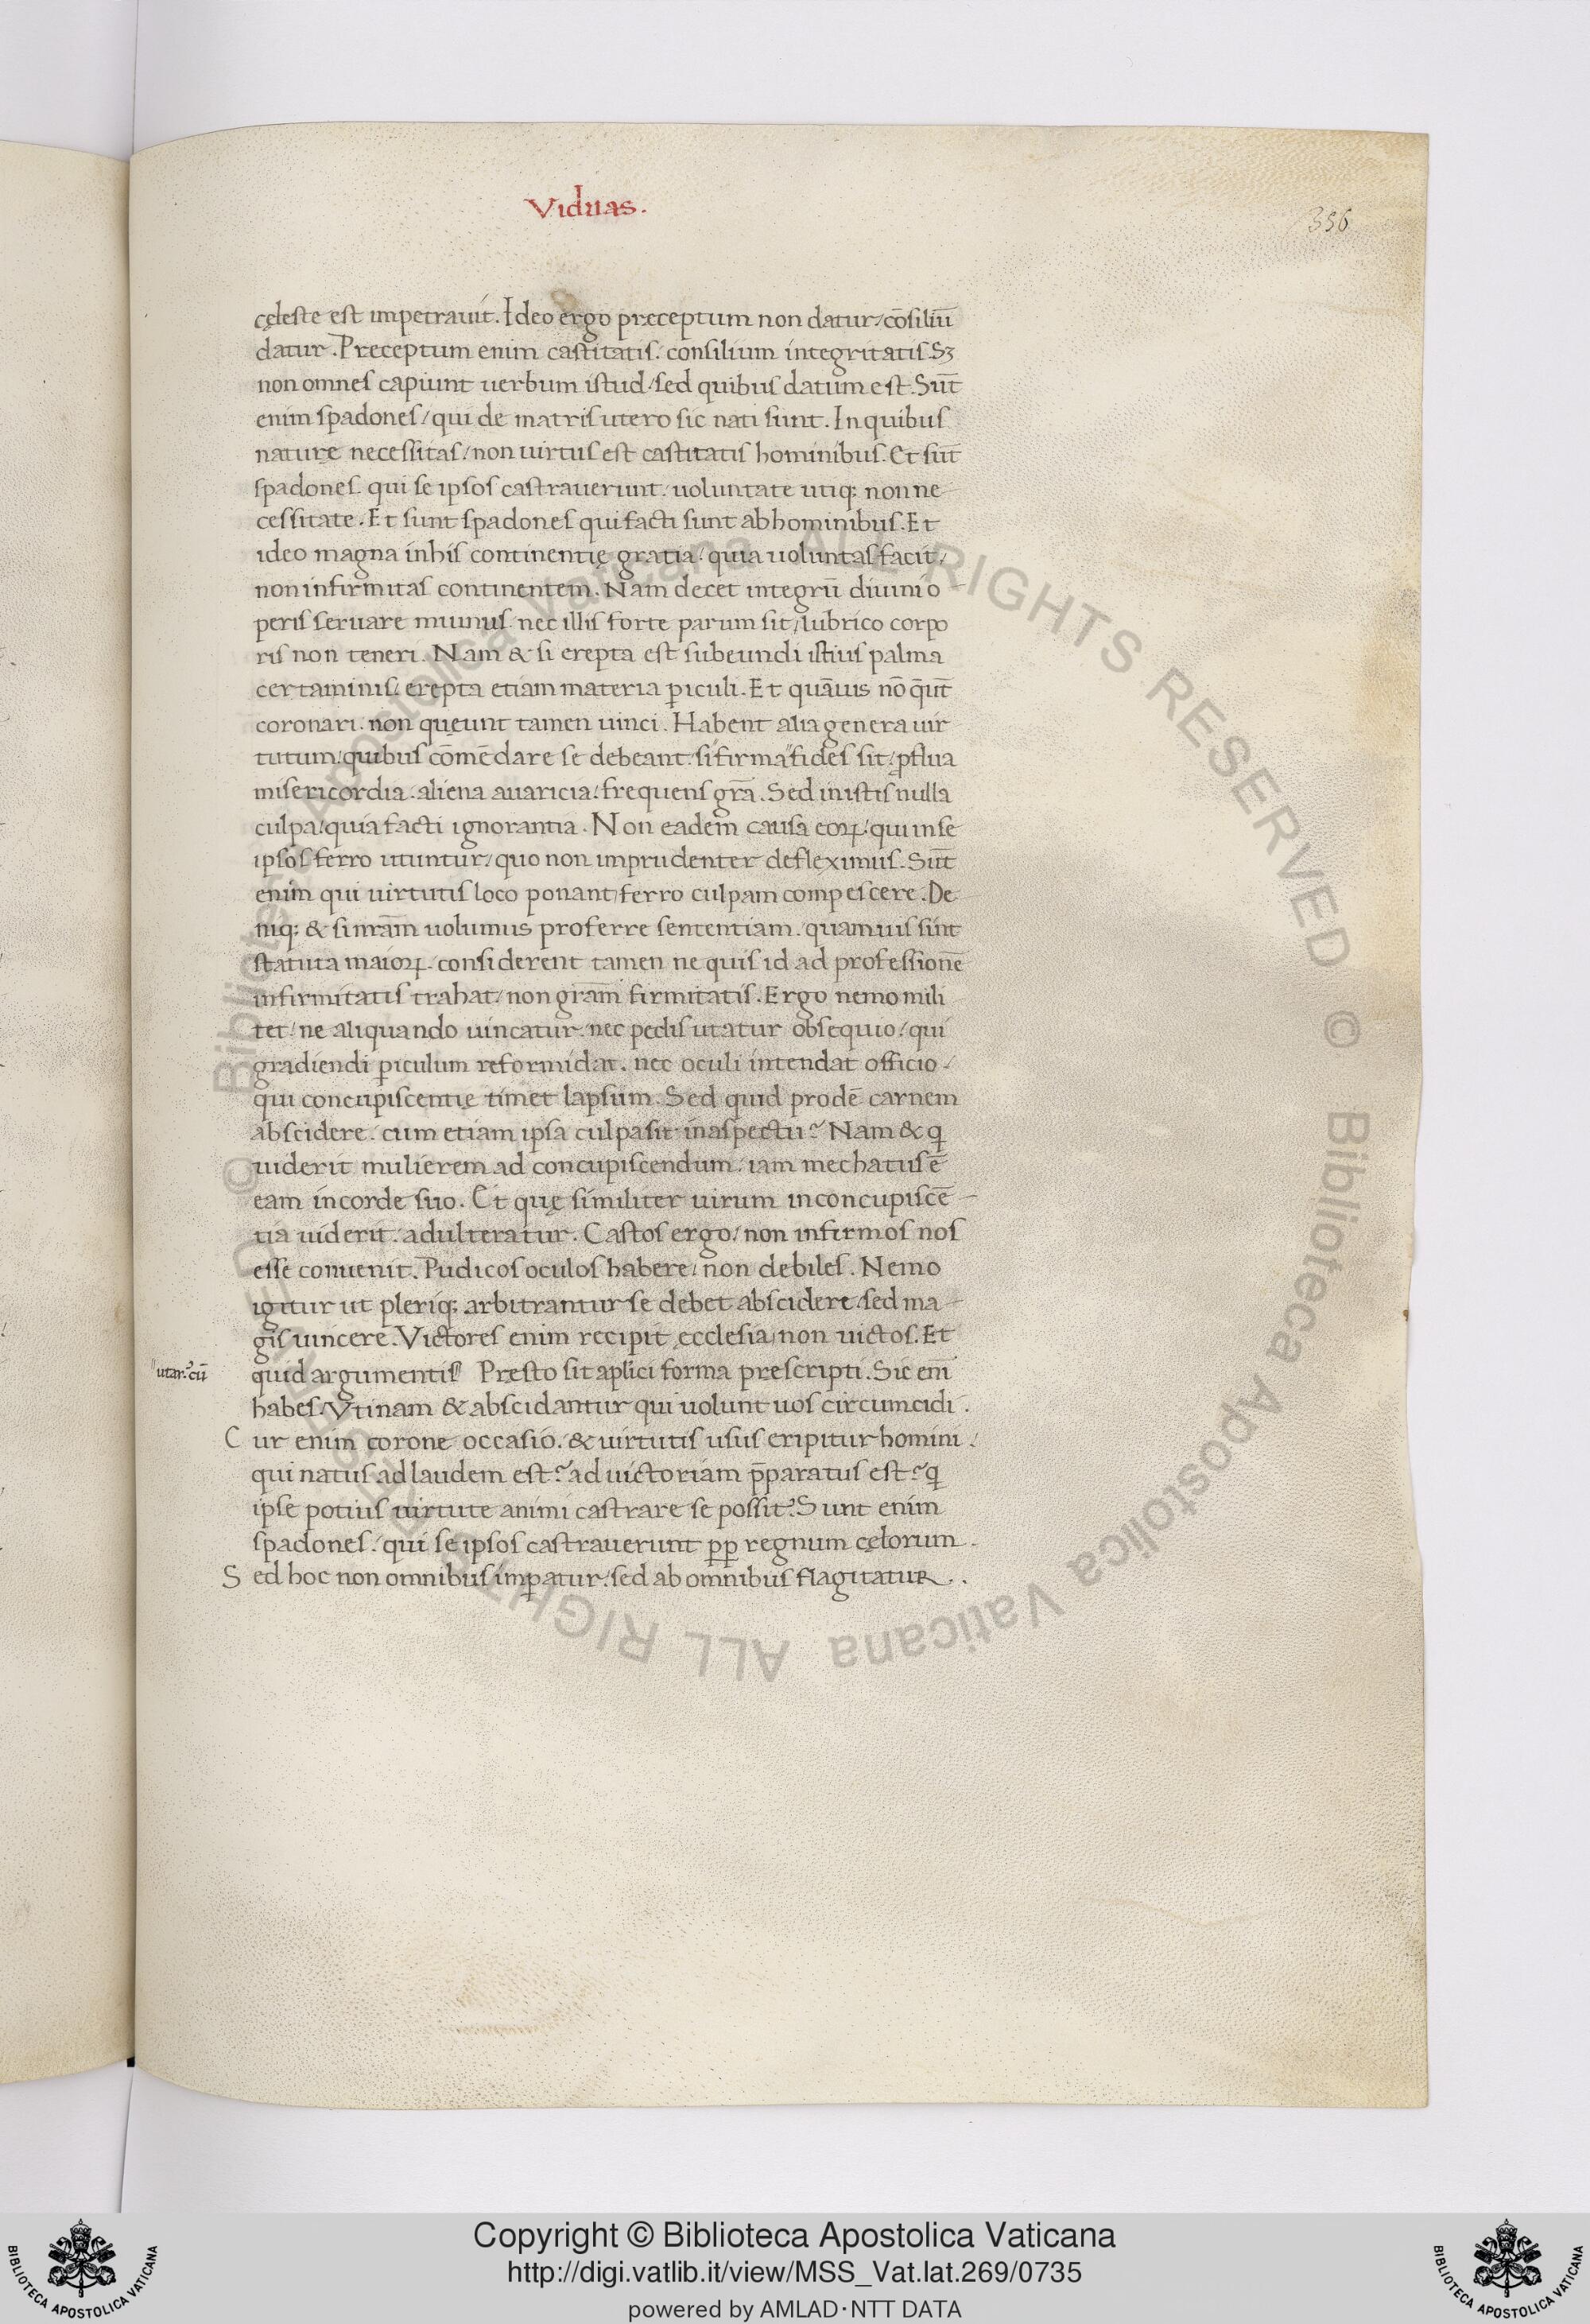 Viduas.
356
cęleste est impetrauit. Ideo ergo preceptum non datur/ cōsiliū
datur. Preceptum enim castitatis. consilium integritatis. Sꝫ
non omnes capiunt uerbum istud/ sed quibus datum est. Sūt
enim spadones/ qui de matris utero sic nati sunt. In quibus
naturę necessitas/ non uirtus est castitatis hominibus. Et sūt
spadones. qui se ipsos castrauerunt. uoluntate utiq; non ne
cessitate. Et sunt spadones qui facti sunt ab hominibus. Et
ideo magna in his continentię gratia/ quia uoluntas facit/
non infirmitas continentem. Nam decet integrū diuini o
peris seruare munus. nec illis forte parum sit/ lubrico corpo
ris non teneri. Nam & si erepta est subeundi istius palma
certaminis/ erepta etiam materia ꝑiculi. Et quāuis nō q̄ūt
coronari. non queunt tamen uinci. Habent alia genera uir
tutum/ quibus cōmēdare se debeant. si firma fides sit/ ꝓflua
misericordia. aliena auaricia/ frequens grā. Sed in istis nulla
culpa/ quia facti ignorantia. Non eadem causa eoꝝ/ qui in se
ipsos ferro utuntur/ quo non imprudenter defleximus. Sūt
enim qui uirtutis loco ponant/ ferro culpam compescere. De
niq; & si nr̄am uolumus proferre sententiam. quamuis sint
statuta maioꝝ. considerent tamen ne quis id ad professionē
infirmitatis trahat/ non grām firmitatis. Ergo nemo mili
tet/ ne aliquando uincatur. nec pedis utatur obsequio/ qui
gradiendi ꝑiculum reformidat. nec oculi intendat officio/
qui concupiscentię timet lapsum. Sed quid prodē carnem
abscidere. cum etiam ipsa culpa sit in aspectu? Nam & q
uiderit mulierem ad concupiscendum. iam mechatus ē
eam in corde suo. Et quę similiter uirum in concupiscē
tia uiderit. adulteratur. Castos ergo/ non infirmos nos
esse conuenit. Pudicos oculos habere/ non debiles. Nemo
igitur ut pleriq; arbitrantur se debet abscidere/ sed ma
gis uincere. Victores enim recipit ecclesia/ non uictos. Et
utar? cū
quid argumentis Pręsto sit aplīci forma prescripti. Sic enī
habes. Vtinam & abscidantur qui uolunt uos circumcidi.
Cur enim corone occasio. & uirtutis usus eripitur homini/
qui natus ad laudem est? ad uictoriam p̄paratus est? q
ipse potius uirtute animi castrare se possit? Sunt enim
spadones. qui se ipsos castrauerunt ꝓp regnum cęlorum.
Sed hoc non omnibus imꝑatur/ sed ab omnibus flagitatur..
© Biblioteca Apostolica Vaticana ALL RIGHTS RESERVED © Biblioteca Apostolica Vaticana ALL RIGHTS RESERVED
Copyright © Biblioteca Apostolica Vaticana
http://digi.vatlib.it/view/MSS_Vat.lat.269/0735
powered by AMLAD·NTT DATA
BIBLIOTECA APOSTOLICA VATICANA
BIBLIOTECA APOSTOLICA VATICANA